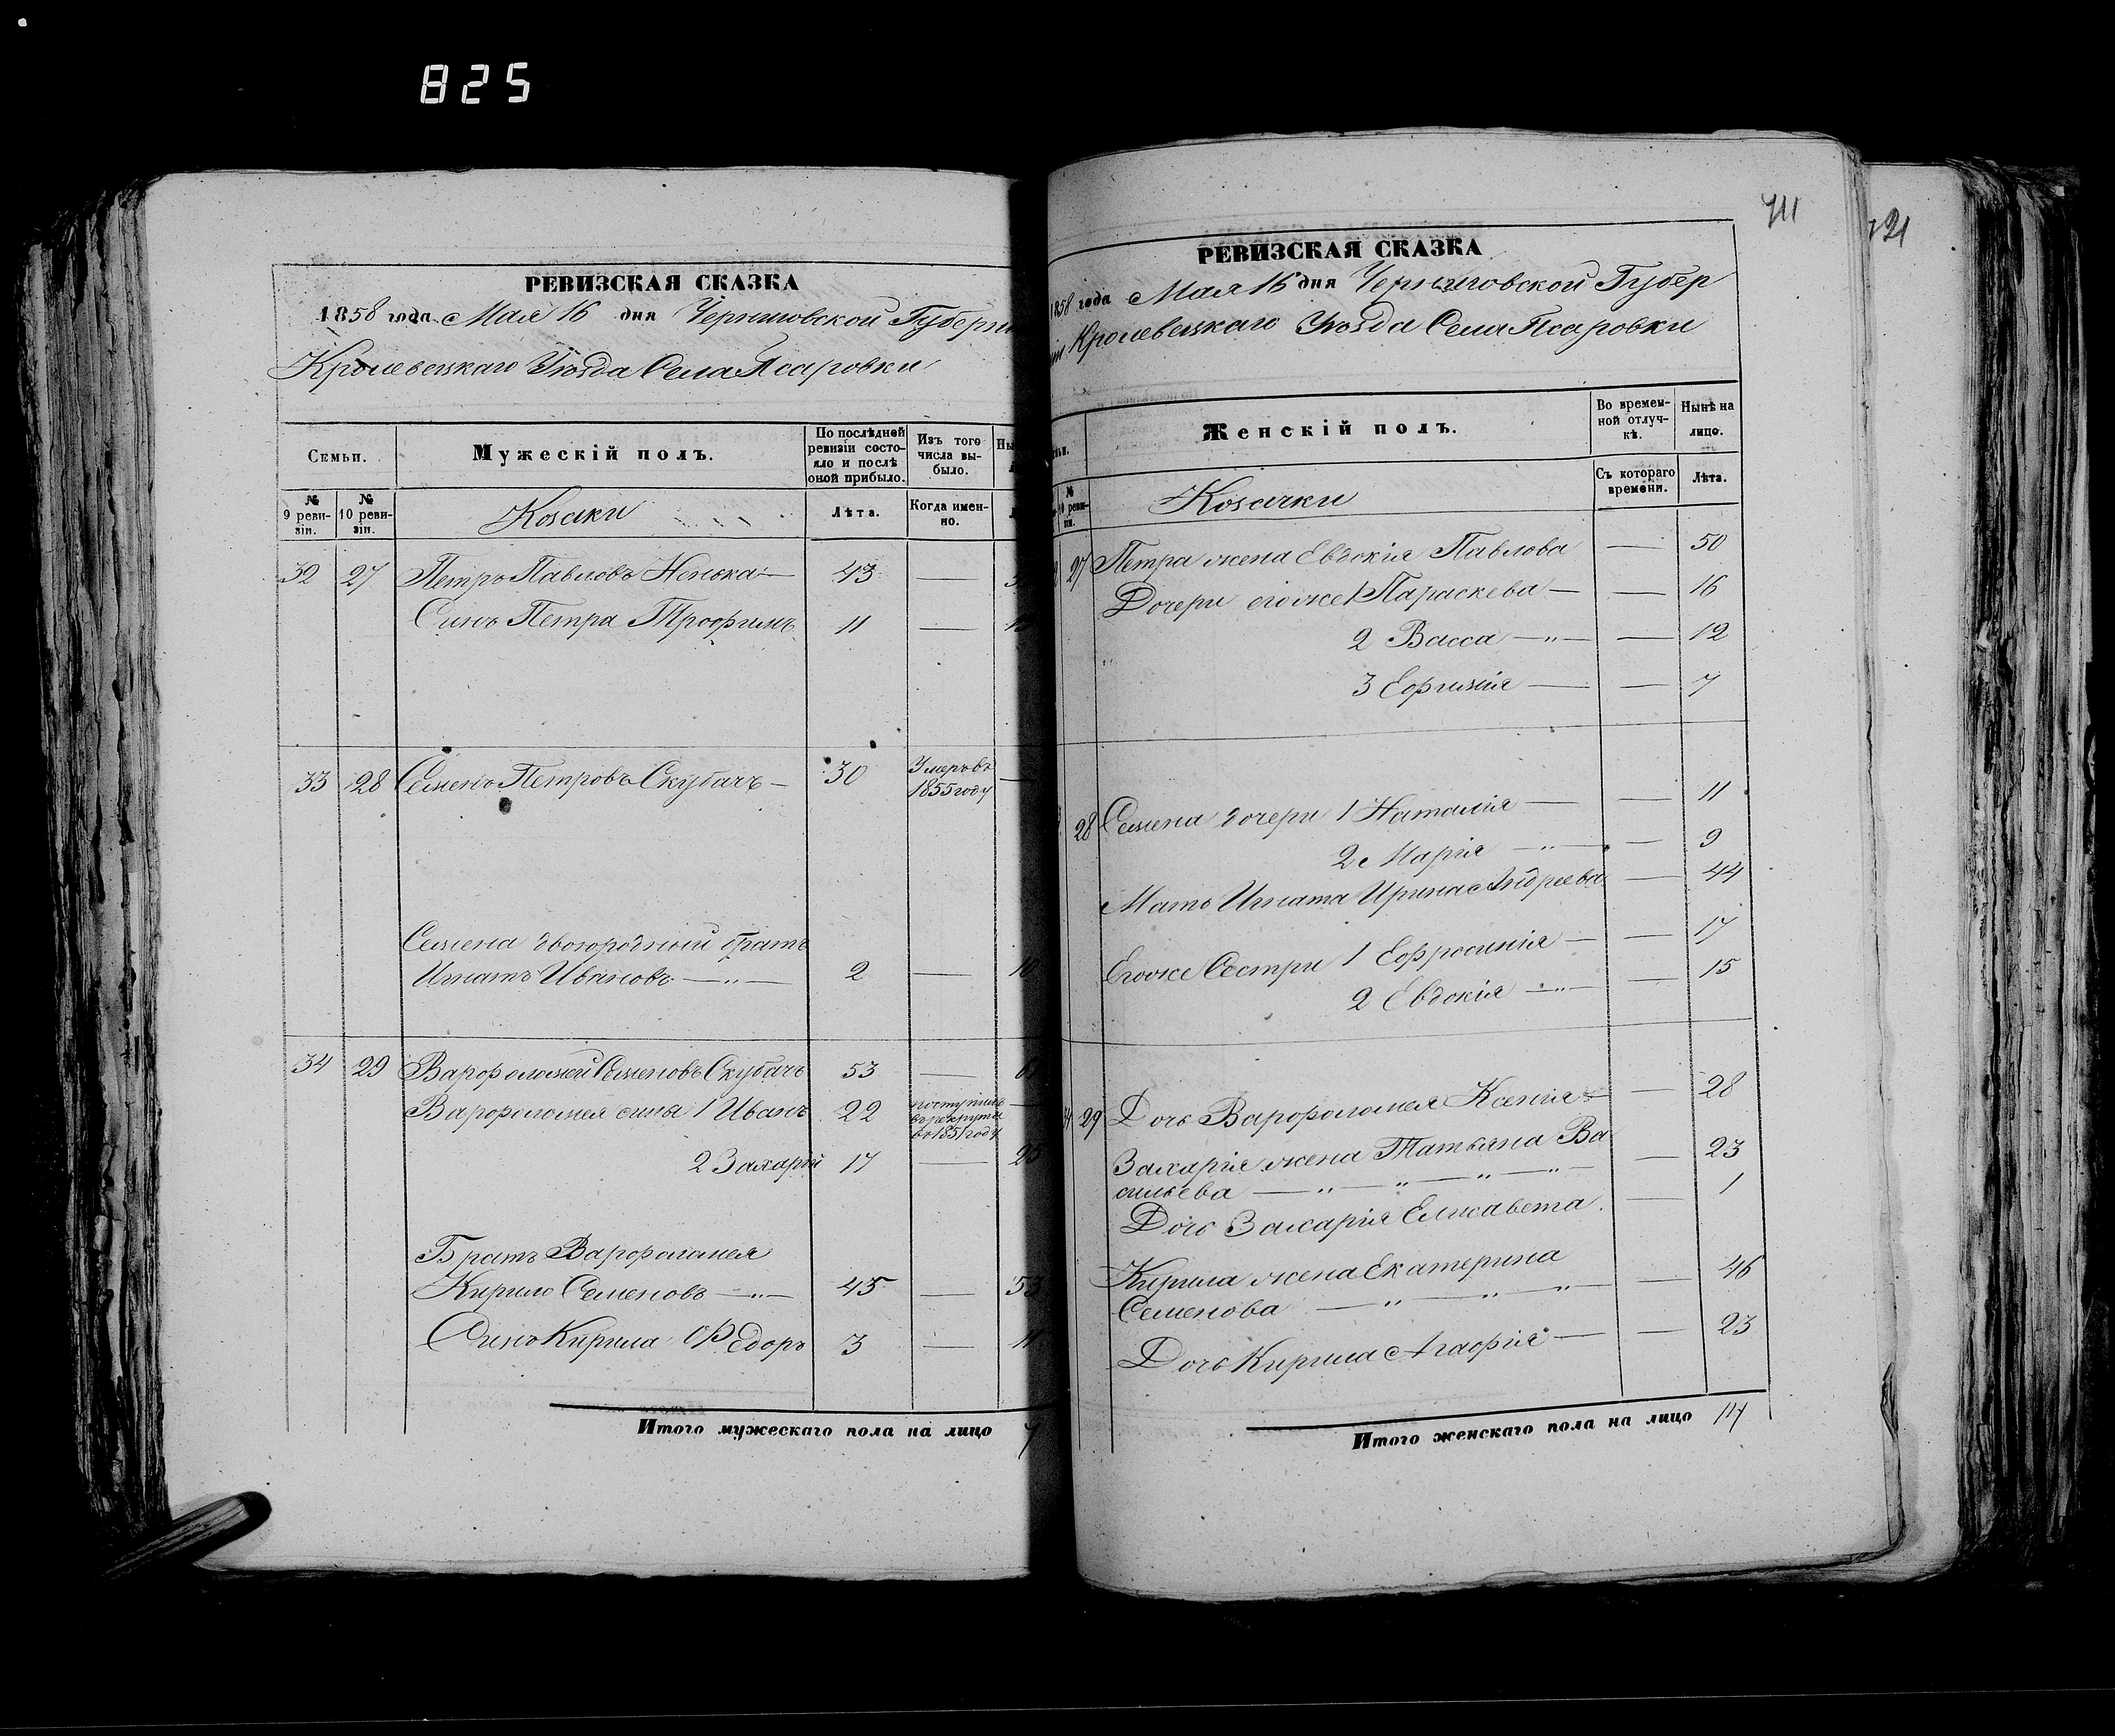 825
РЕВИЗСКАЯ СКАЗКА
1858 года Мая 16 дня Черниговской Губерн
Кролевецкаго Уѣзда Села Псаровки
Семьи.
Мужескій полъ.
По послѣдней ревизіи состояло и послѣ оной прибыло.
Изъ того числа выбыло.
Ны
№ 9 ревизіи.
№ 10 ревизіи.
Козаки
Лѣта.
Когда именно.
32 27 Петръ Павловъ Ненька — 43 —
Синъ Петра Трофимъ 11 —
33 28 Семенъ Петровъ Скубачъ — 30 Умеръ въ 1855 году —
Семена двоюродный братъ
Игнатъ Ивановъ — " — 2 — 10
34 29 Варфоломей Семеновъ Скубачъ 53 — 61
Варфоломея сины 1 Иванъ 22 поступилъ в рекруты в 1851 году —
2 Захарій 17 — 25
Братъ Варфоломея
Кирило Семеновъ — " — 45 — 53
Синъ Кирила Фѣдоръ 3 — 11
Итого мужескаго пола на лицо 7
711
721
РЕВИЗСКАЯ СКАЗКА
1858 года Мая 16 дня Черниговской Губер
ніи Кролевецкаго Уѣзда Села Псаровки
Женскій полъ.
Во временной отлучкѣ.
Нынѣ на лицо.
№ 10 ревизіи.
Козачки
Съ котораго времени.
Лѣта.
27 Петра жена Евдокія Павлова — 50
Дочери егоже 1 Параскева — — 16
2 Васса — " — — 12
3 Ефимія — — 7
28 Семена дочери 1 Наталія — — 11
2 Марія — " — — 9
Мать Игната Ирина Андреева — 44
Егоже Сестри 1 Ефросинія — — 17
2 Евдокія — " — — 15
29 Дочь Варфоломея Ксенія — — 28
Захарія жена Татьяна Ва
сильева — " — " — " — " — — 23
Дочь Захарія Елисавета. — 1
Кирила жена Екатерина
Семенова — " — " — " — 46
Дочь Кирила Агафія — — 23
Итого женскаго пола на лицо 14